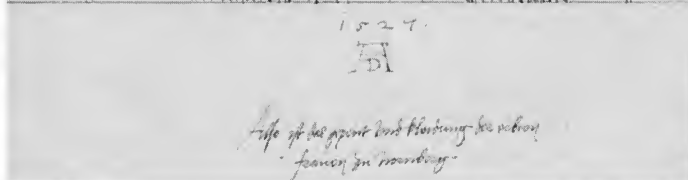 1 5 2 7 .
AD
Also ist das gepent Und kleidung der
frawen zu nornberg.